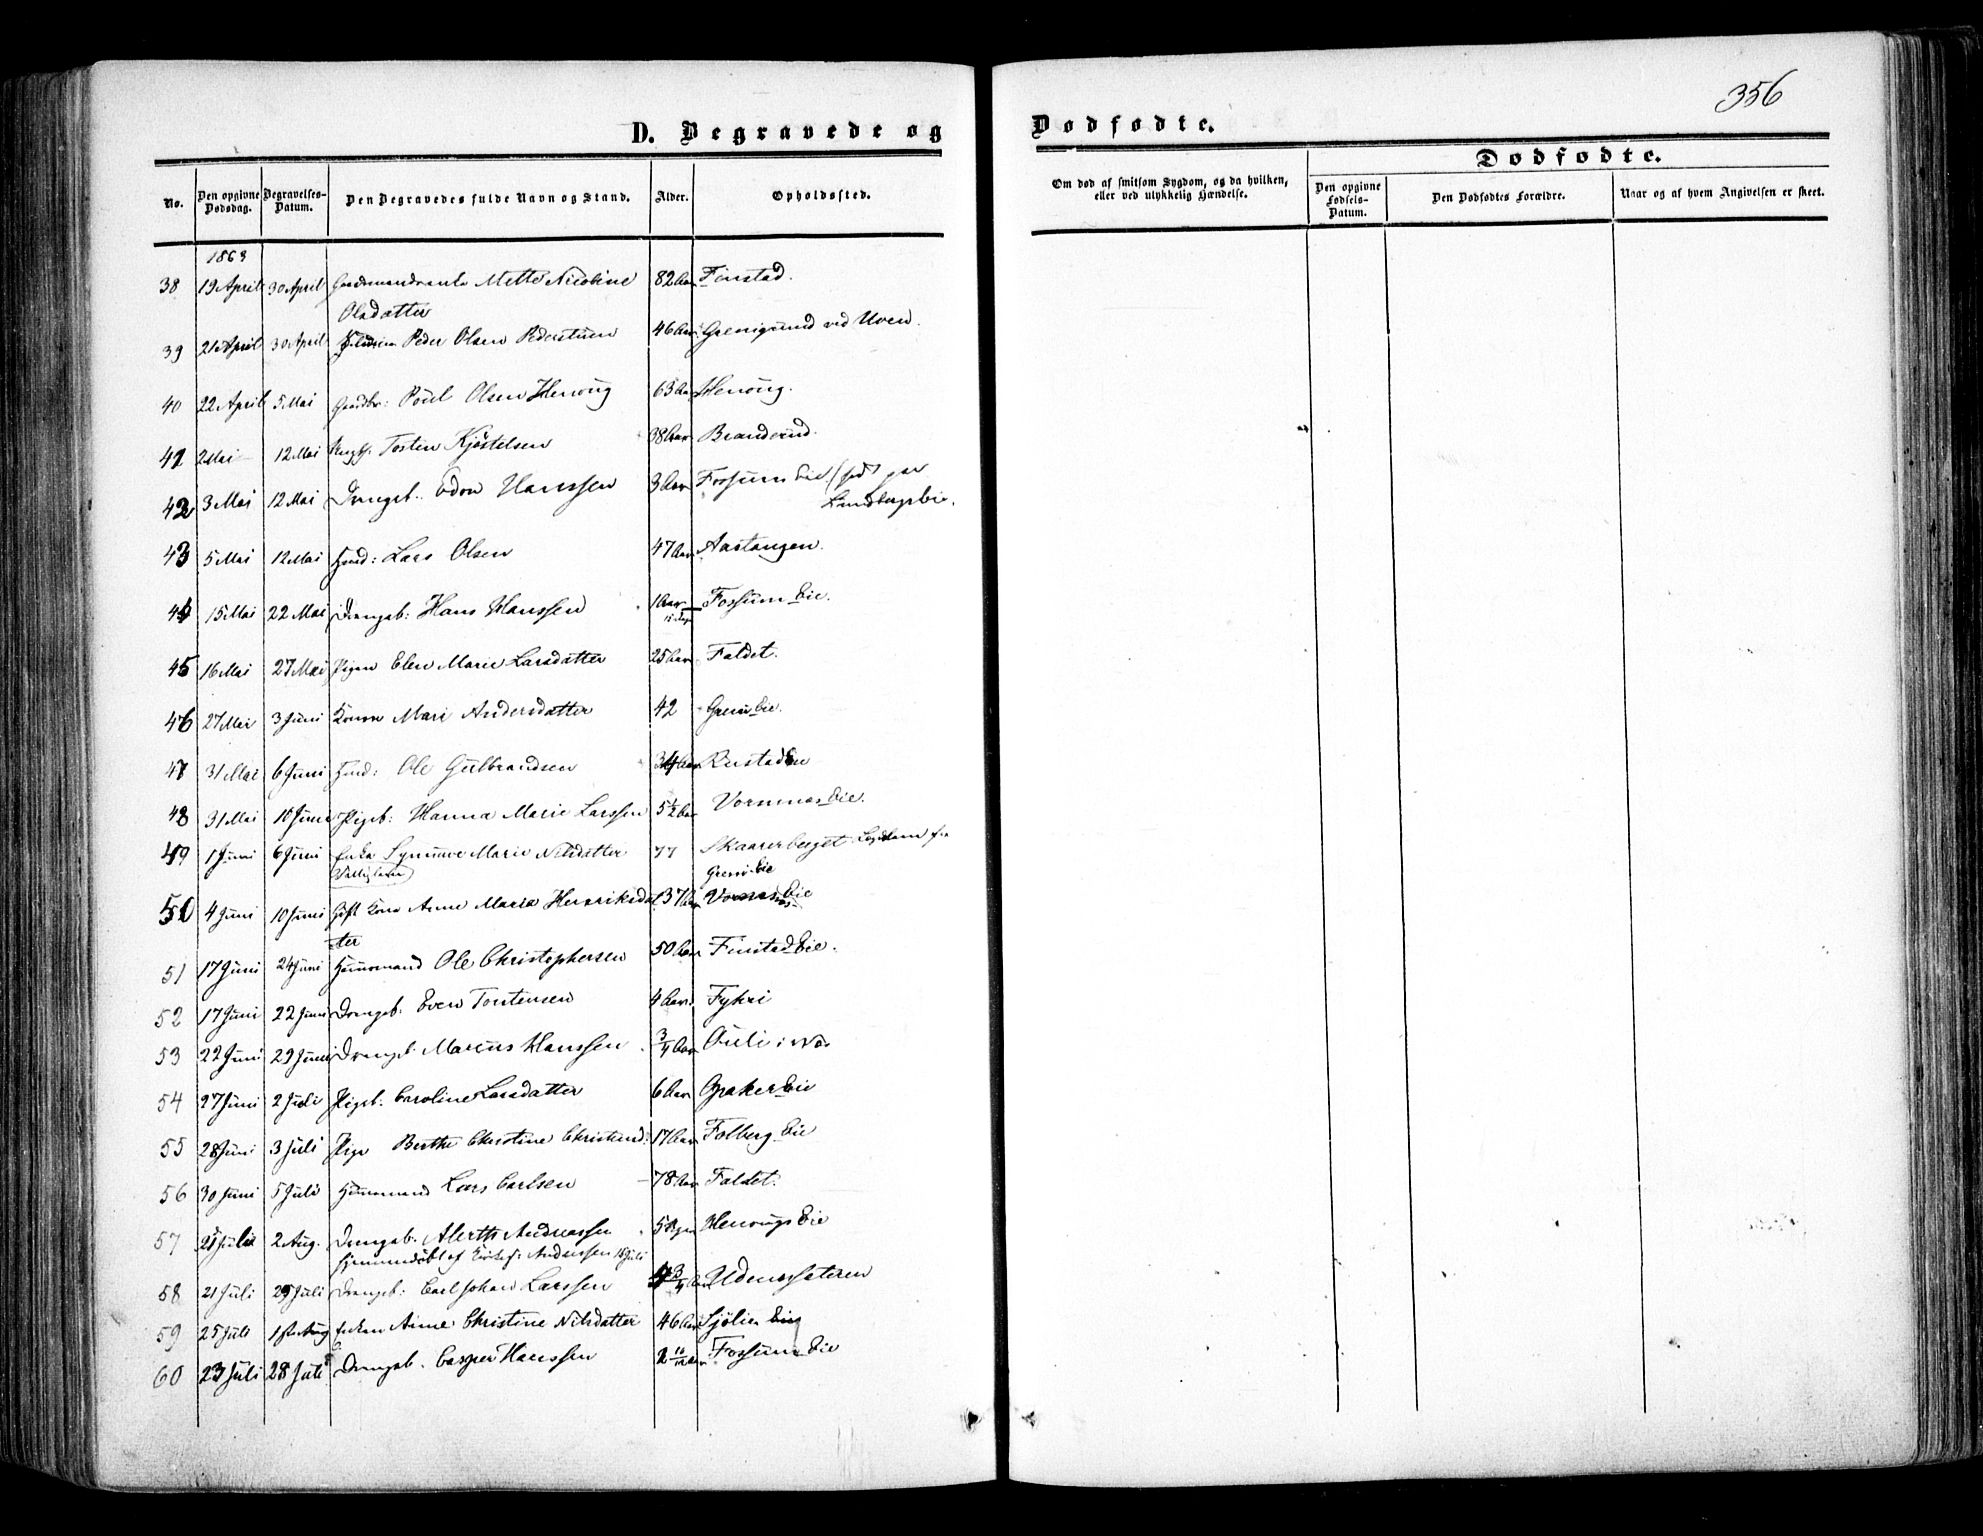 356
D. Begravede og Dødfødte.
Dødfødte.
No. Den opgivne Dødsdag. Begravelses-Datum. Den Begravedes fulde Navn og Stand. Alder. Opholdssted. Om død af smitsom Sygdom, og da hvilken, eller ved ulykkelig Hændelse. Den opgivne Fødsels-Datum. Den Dødfødtes Forældre. Naar og af hvem Angivelsen er skeet.
1863
38 19 April 30 April Mette Nicoline 82 Aar Finstad.
Olsdatter
39 21 April 30 April Peder Olsen Pederstuen 46 Aar ved Uven.
40 22 April 5 Mai Gaardbr: Poul Olsen Henoug 63 Aar Henoug.
41 2 Mai 12 Mai Tosten Kjøstelsen 38 Aar Branderud.
42 3 Mai 12 Mai Drengeb. Edon Hanssen 3 Aar Fossum Eie
43 5 Mai 12 Mai Huusd: Lars Olsen 47 Aar Aastangen.
44 15 Mai 22 Mai Drengeb: Hans Hanssen 1 Aar Fossum Eie.
45 16 Mai 27 Mai Pigen Elen Marie Larsdatter 25 Aar Faldet.
46 27 Mai 3 Juni Konen Mari Andersdatter 42 Greni Eie.
47 31 Mai 6 Juni Ole Gulbrandsen Aar
48 31 Mai 10 Juni Pigeb: Hanna Marie Larssen 5½ Aar Vormnæs Eie.
49 1 Juni 6 Juni Enke Synnøve Marie Nilsdatter 77 Skaarerberget Lægdslem fra
Greni Eie
50 4 Juni 10 Juni Gift Kone Anne Maria Henriksdat 37 Aar Eie
ter
51 17 Juni 24 Juni Huusmand Ole Christophersen 50 Aar Finstad Eie.
52 17 Juni 22 Juni Drengeb. Even Torstensen 4 Aar. Fykri
53 22 Juni 29 Juni Drengeb Marcus Hanssen ¾ Aar Auli i Næs
54 27 Juni 2 Juli Pigeb. Caroline Larsdatter 6 Aar Opaker Eie
55 28 Juni 3 Juli Pige Berthe Christine 17 Aar Folberg Eie
56 30 Juni 5 Juli Huusmand Lars Carlsen 78 Aar Faldet.
57 Juli 2 Aug. Drengeb. Andreassen 5 Henougs Eie
hjemmedøbt af Andersen 18 Juli
58 21 Juli 29 Juli Drengeb: Carl Johan Larssen ¾ Aar Udenessæteren
59 25 Juli 1ste Aug Enken Anne Christine Nilsdatter 46 Aar Sjøli Eie
60 23 Juli 28 Juli Drengeb. Casper Hanssen Aar Fossum Eie